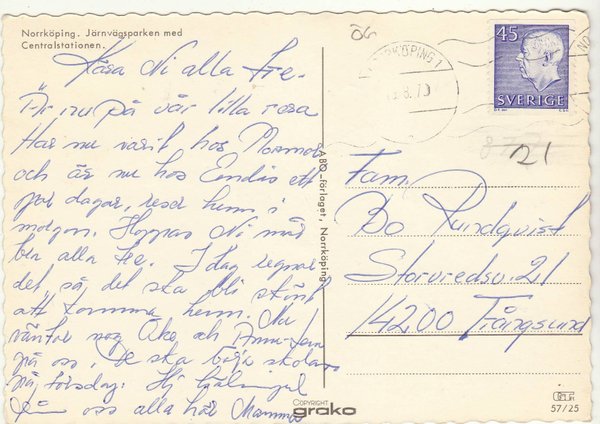 Norrköping. Järnvägsparken med
Centralstationen.
Kära Ni alla tre.
Är nu på vår lilla resa
Har nu varit hos Mormor
och är nu hos Gundis ett
par dagar, reser hem i
morgon. Hoppas Ni mår
bra alla tre. I dag regnar
det, så det ska bli skönt
att komma hem. Nu
väntar nog Åke och Ann-
på oss, De ska börja skolan
på torsdag. Hej
från oss alla här Mamma
ABO-förlaget, Norrköping
NORRKÖPING 1
8.70
45
SVERIGE
21
Fam
Bo Rundqvist
Storvredsv. 21
14200 Trångsund
COPYRIGHT
grako
57/25